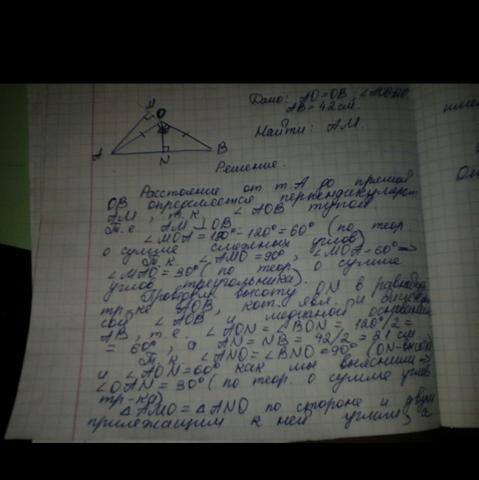 Дано: AO=OB,
AB=42 см.
Найти: AM.
M
O
A
N
B
Решение.
Расстояние от т.A до прямой
OB определяется перпендикуляром
AM, т.к. ∠AOB тупой
т.е. AM⊥OB
∠MOA=180°-120°=60° (по теор.
о сумме смежных углов)
Т.к. ∠AMO=90°, ∠MOA=60°⇒
∠MAO=30° (по теор. о сумме
углов треугольника).
Проведём высоту ON в равнобед.
тр-ке AOB, кот. явл. и биссектри
сой ∠AOB и медианой основания
AB, т.е. ∠AON=∠BON=120°/2=
=60°, а AN=NB=42/2=21 см
Т.к. ∠ANO=∠BNO=90° (ON-высота)
и ∠AON=60° как мы выяснили⇒
∠OAN=30° (по теор. о сумме углов
тр-ка)
△AMO=△ANO по стороне и двум
прилежащим к ней углам, а